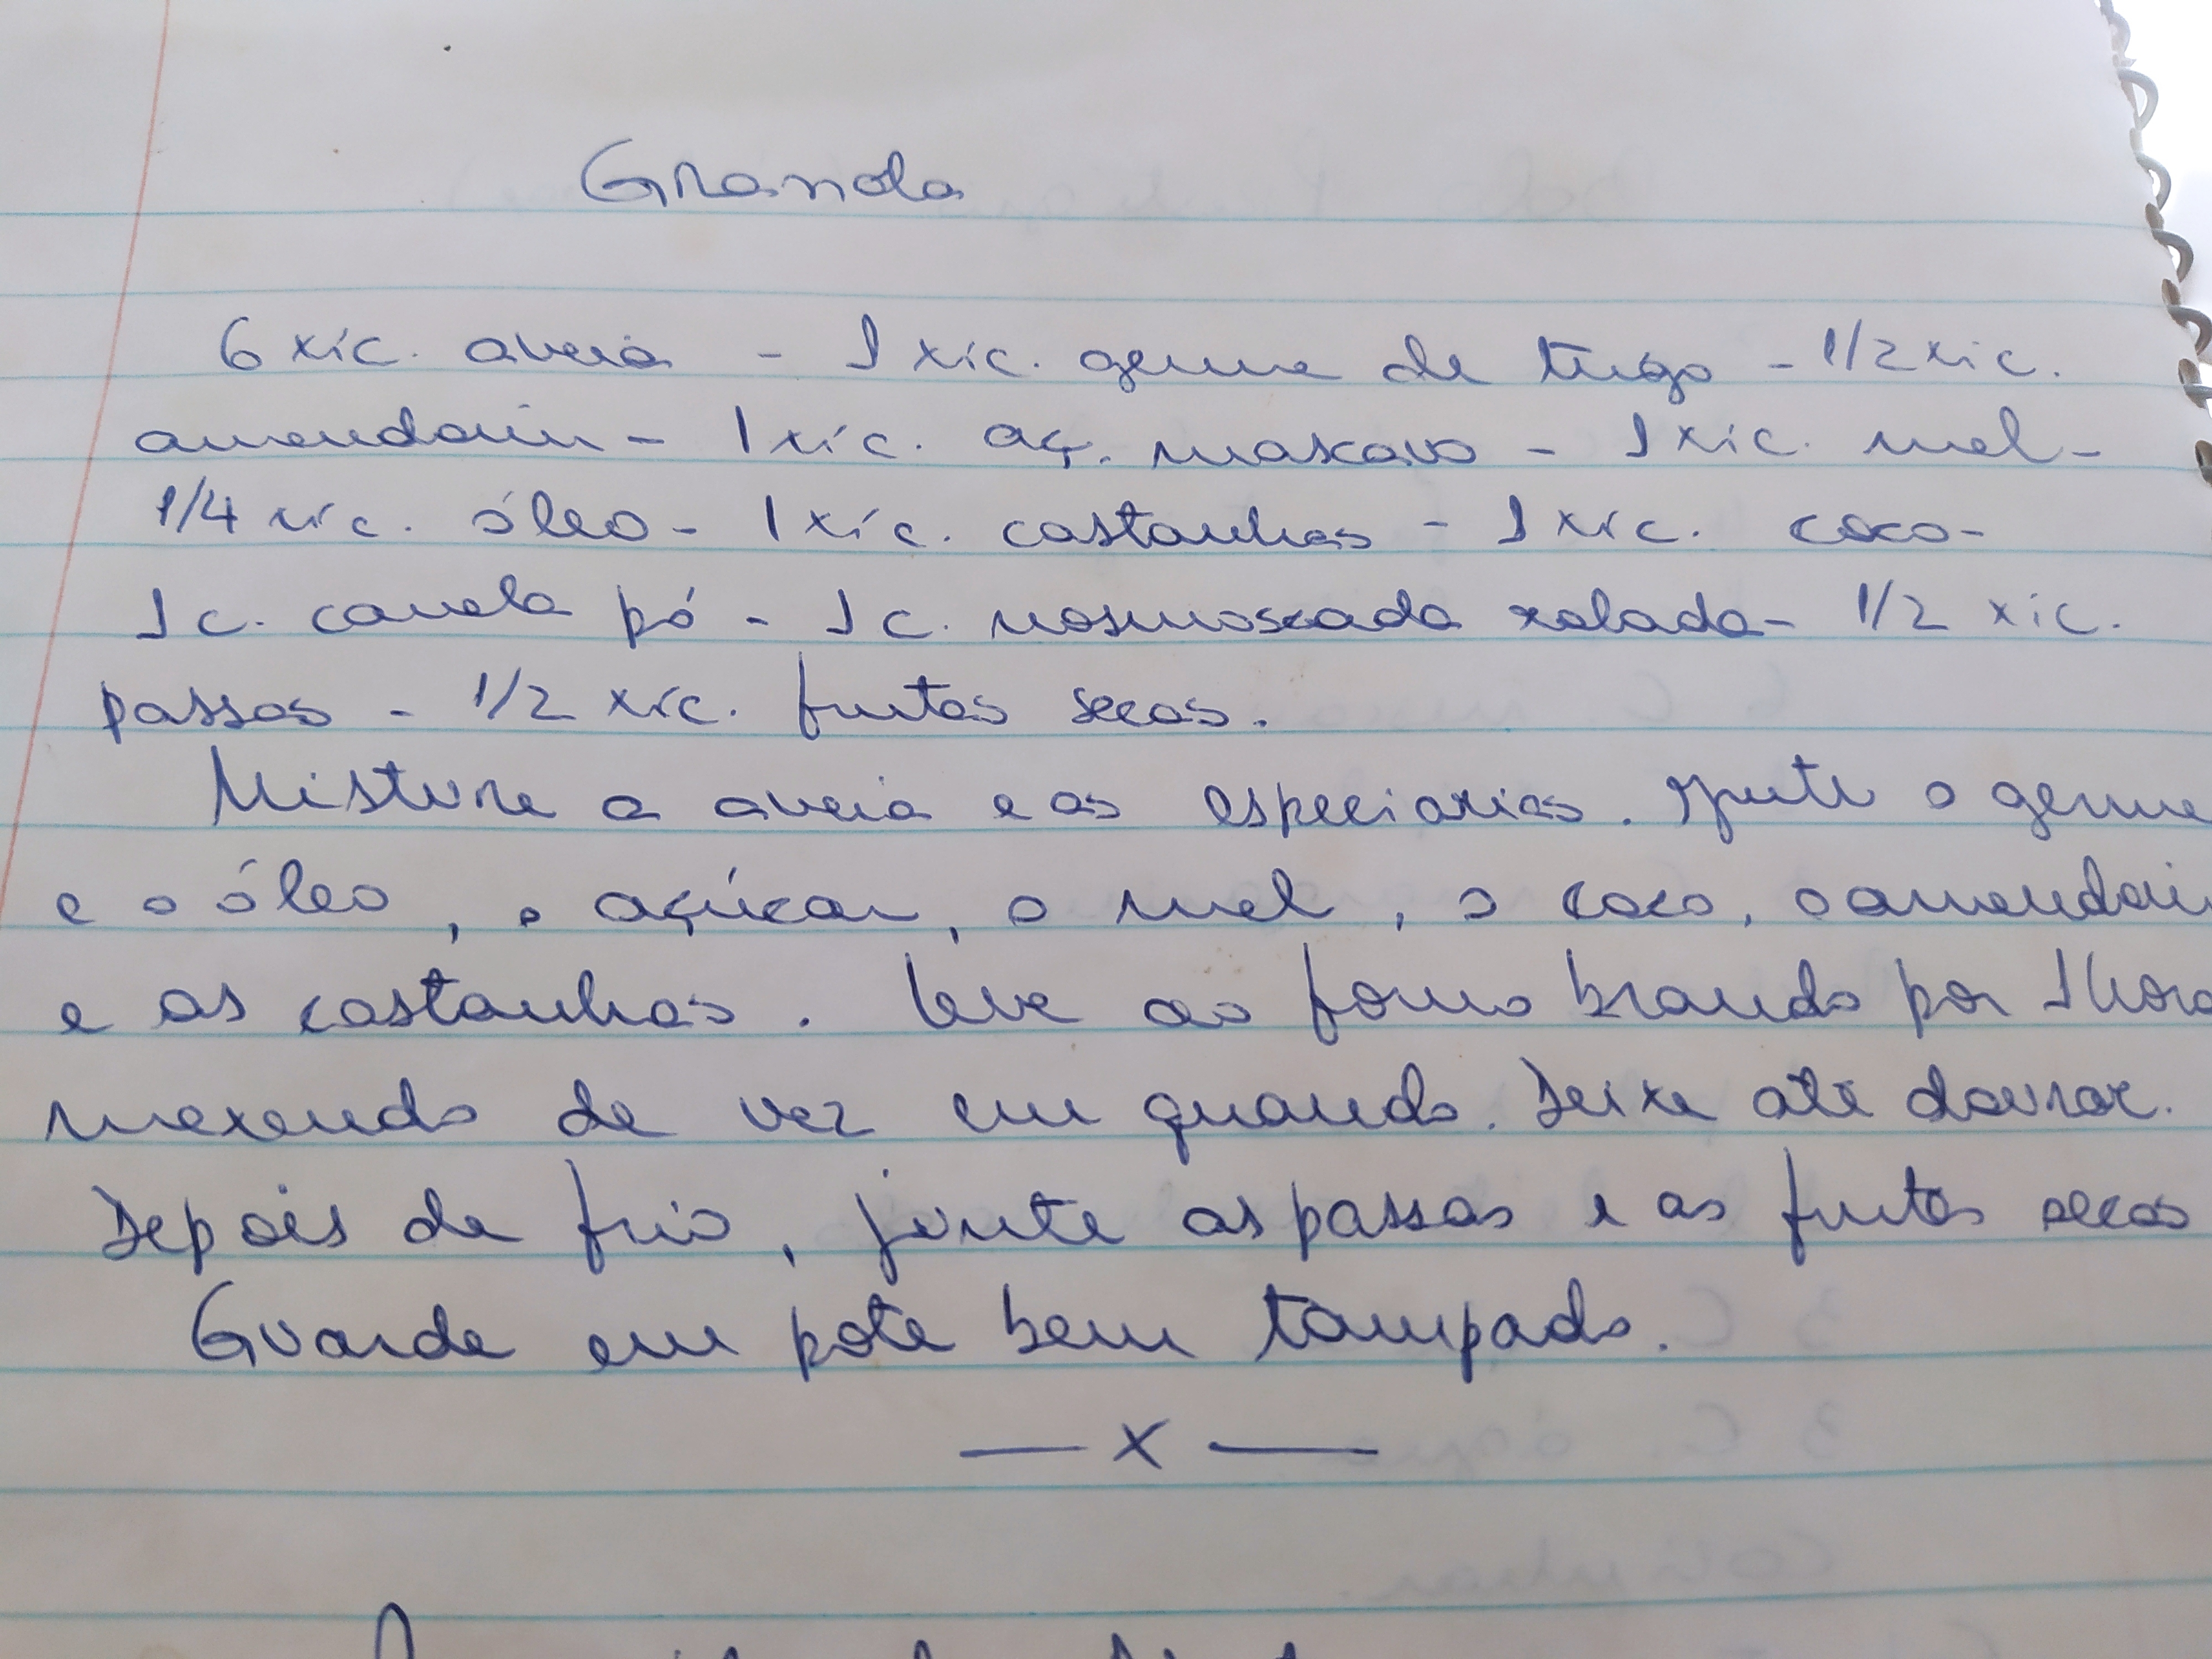 Granola
6 xíc. aveia - 1 xíc. germe de trigo - 1/2 xíc.
amendoim - 1 xíc. aç. mascavo - 1 xíc. mel -
1/4 xíc. óleo - 1 xíc. castanhas - 1 xíc. coco -
1 c. canela pó - 1 c. nosmoscada ralada - 1/2 xíc.
passas - 1/2 xíc. frutas secas.
Misture a aveia e as especiarias. Junte o germe
e o óleo, o açúcar, o mel, o coco, o amendoim
e as castanhas. Leve ao forno brando por 1 hora
mexendo de vez em quando. Deixe até dourar.
Depois de frio, junte as passas e as frutas secas
Guarde em pote bem tampado.
— x —